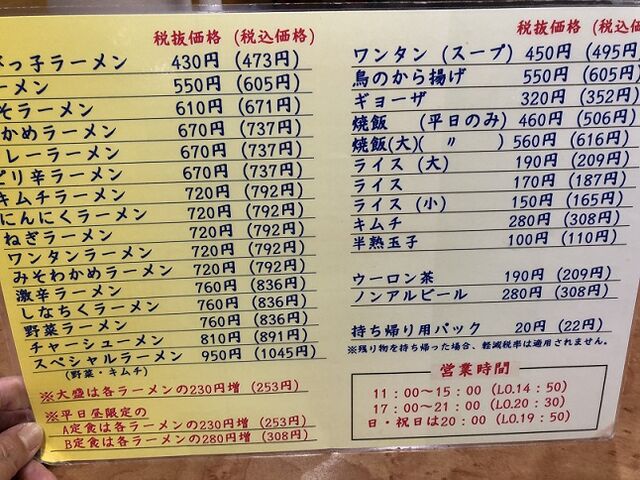 税抜価格 (税込価格)
っ子ラーメン 430円 (473円)
ーメン 550円 (605円)
そラーメン 610円 (671円)
かめラーメン 670円 (737円)
レーラーメン 670円 (737円)
ピリ辛ラーメン 670円 (737円)
キムチラーメン 720円 (792円)
にんにくラーメン 720円 (792円)
ねぎラーメン 720円 (792円)
ワンタンラーメン 720円 (792円)
みそわかめラーメン 720円 (792円)
激辛ラーメン 760円 (836円)
しなちくラーメン 760円 (836円)
野菜ラーメン 760円 (836円)
チャーシューメン 810円 (891円)
スペシャルラーメン 950円 (1045円)
(野菜・キムチ)
※大盛は各ラーメンの230円増 (253円)
※平日昼限定の
A定食は各ラーメンの230円増 (253円)
B定食は各ラーメンの280円増 (308円)
税抜価格 (税込価格
ワンタン (スープ) 450円 (495円
鳥のから揚げ 550円 (605円)
ギョーザ 320円 (352円)
焼飯 (平日のみ) 460円 (506円)
焼飯(大)( 〃 ) 560円 (616円)
ライス (大) 190円 (209円)
ライス 170円 (187円)
ライス (小) 150円 (165円)
キムチ 280円 (308円)
半熟玉子 100円 (110円)
ウーロン茶 190円 (209円)
ノンアルビール 280円 (308円)
持ち帰り用パック 20円 (22円)
※残り物を持ち帰った場合、軽減税率は適用されません。
営業時間
11：00～15：00 (LO.14：50)
17：00～21：00 (LO.20：30)
日・祝日は20：00 (LO.19：50)